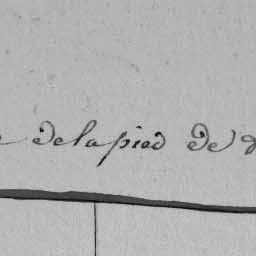 delapied de